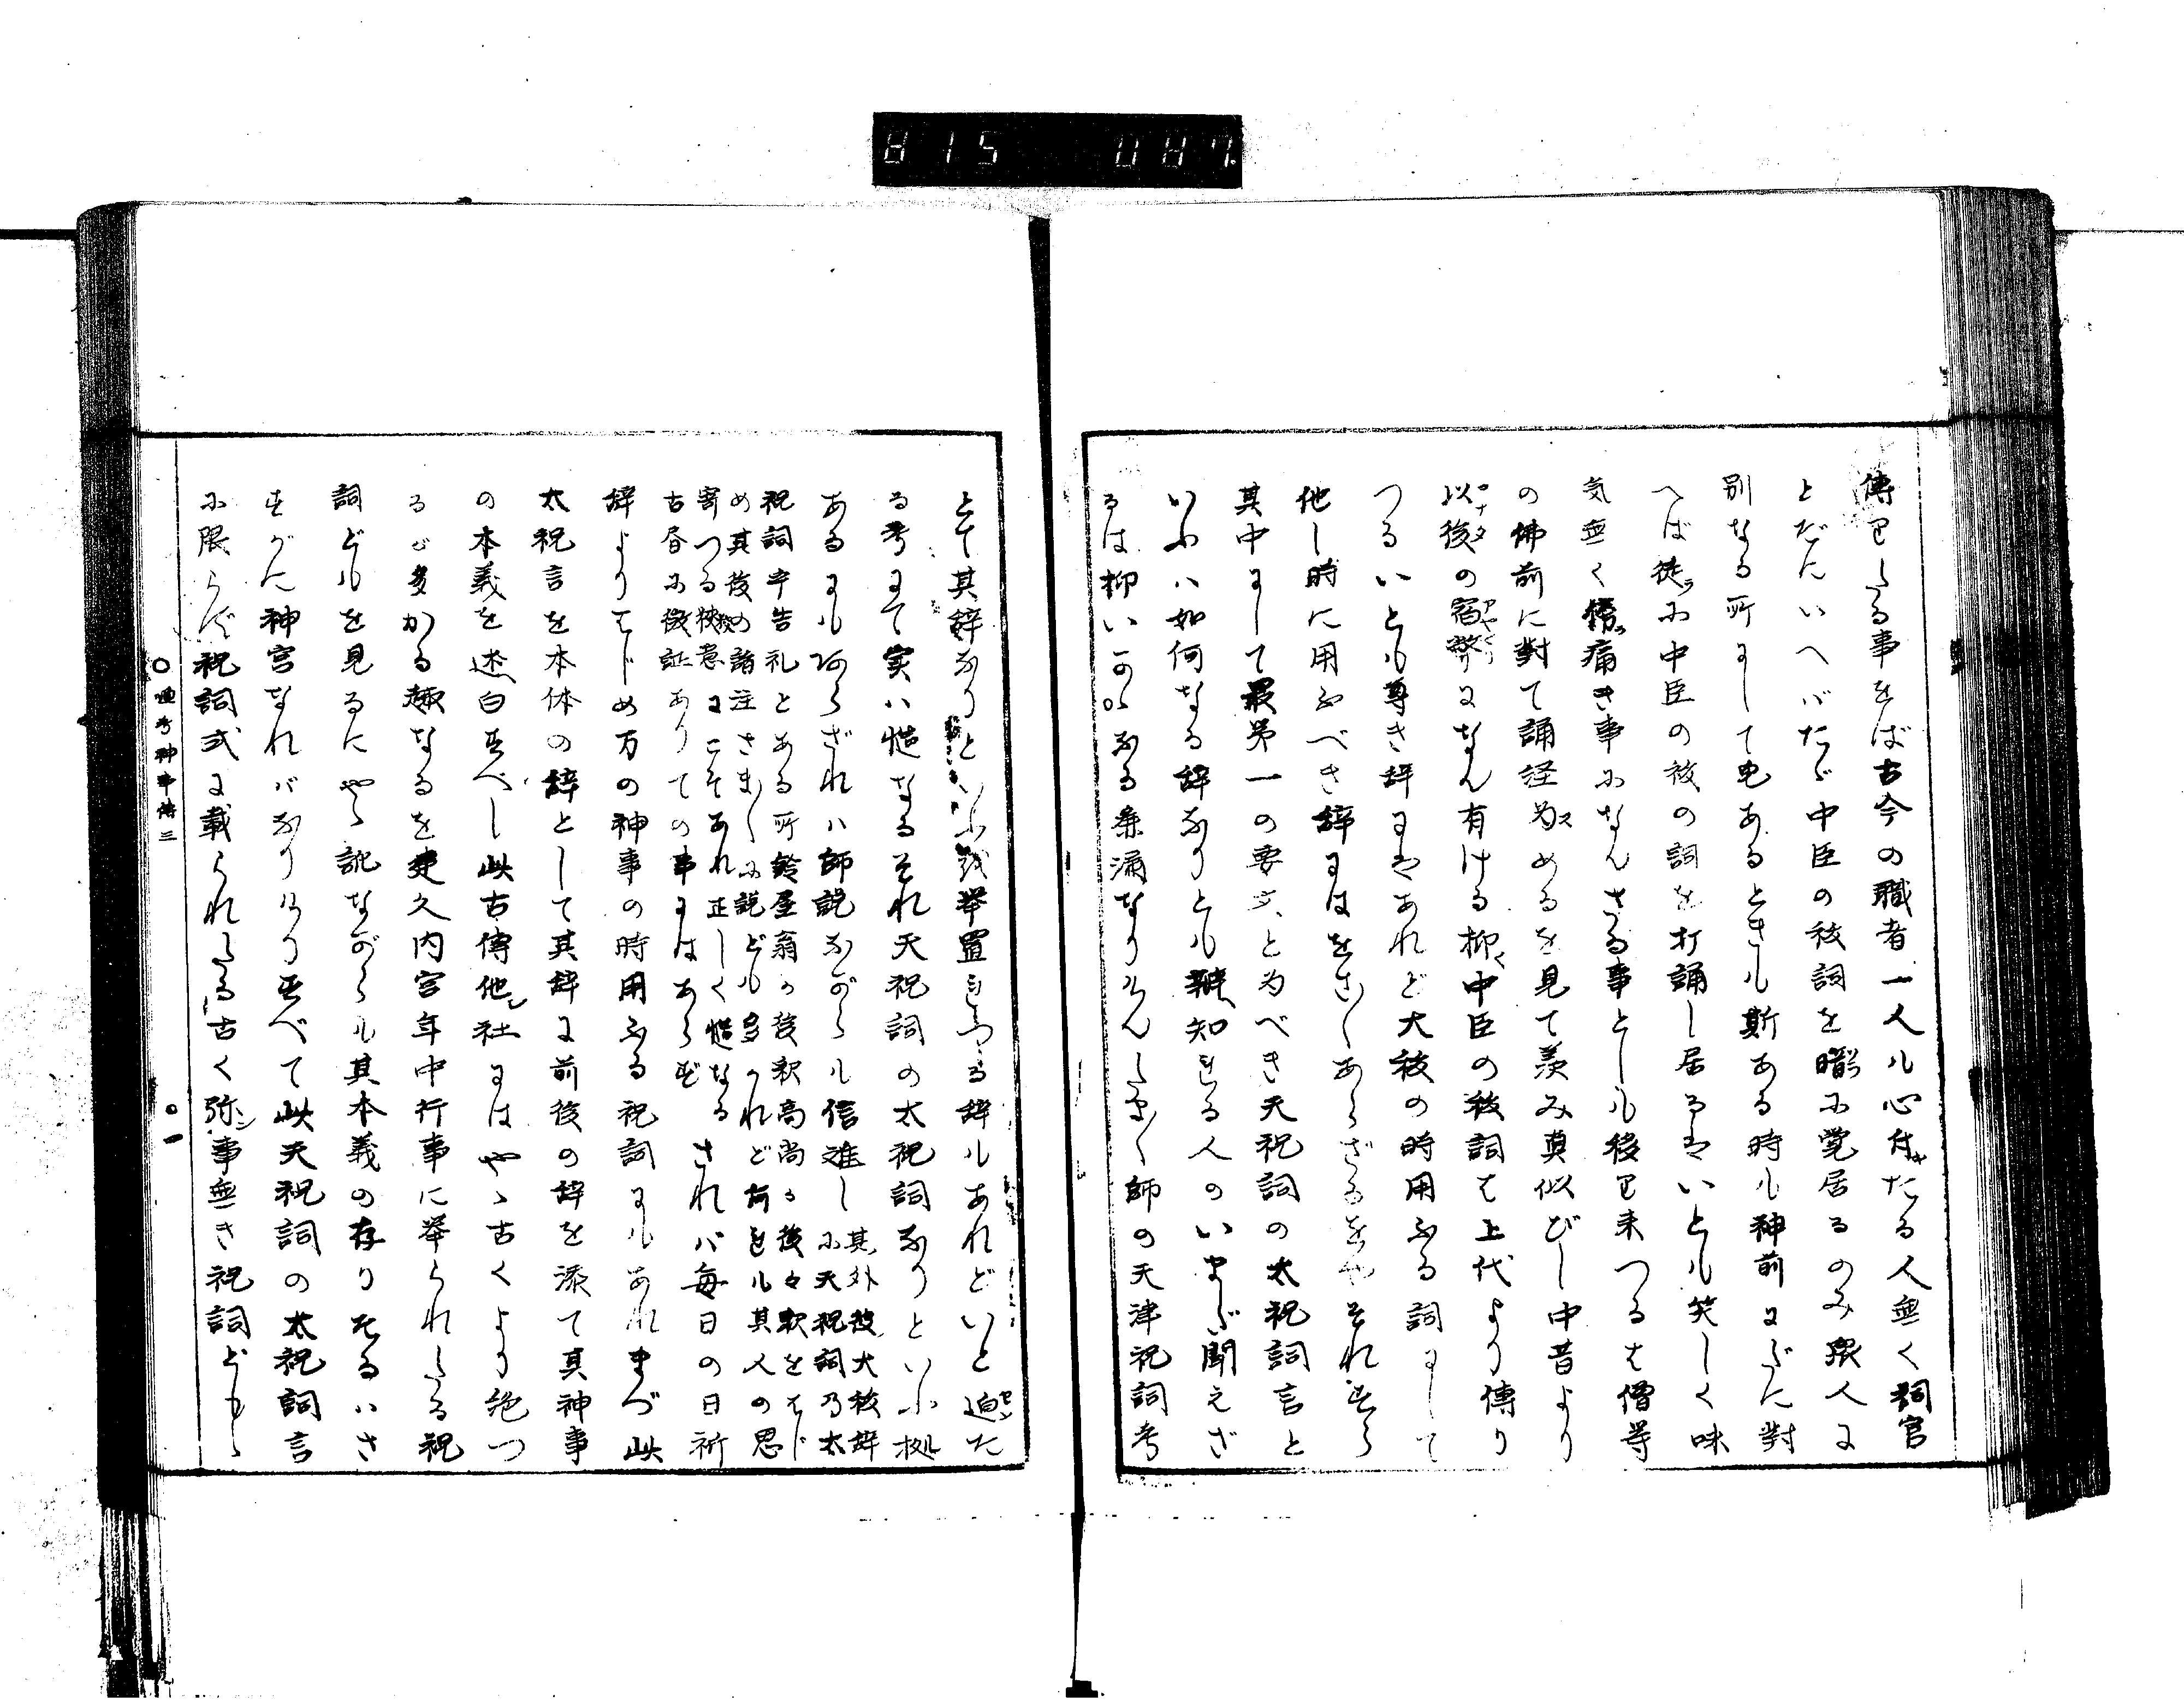 815 087
傳はしたる事をば古今の職者一人も心付たる人無く祠官
とだにいへバたゞ中臣の祓詞を暗に覚居るのみ衆人に
別なる所にして毛あるときも斯ある時も神前にだに對
へば徒に中臣の祓の詞を打誦し居るはいとも笑しく味
気無く傍痛き事になんさる事としも移り来つるは僧等
の佛前に對て誦経為めるを見て羨み真似びし中昔より
以後の宿弊になん有ける抑中臣の祓詞は上代より傳り
つるいとも尊き辞にはあれど大祓の時用ふる詞にして
他し時に用ふべき辞にはをさ〱あらざるをやそれすら
其中にして最第一の要文と為べき天祝詞の太祝詞言と
いふハ如何なる辞なりとも辨知せる人のいまだ聞えざ
るは抑いかなる棄漏なりけんしか〱師の天津祝詞考
とて其辞なりといふ式挙置れつる辞もあれどいと迫た
る考にて実ハ慥なるそれ天祝詞の太祝詞なりといふ拠
あるにも阿らざれハ師説ながらも信難し其外後大祓辞
に天祝詞乃太
祝詞乎告礼とある所鈴屋翁の後釈高尚の後々釈をはじ
め其後の諸注さま〲に説ども多かれど有も其人の思
寄つる救意にこそあれ正しく慥なる
古昏に徴証ありての事にはあらずされバ毎日の日祈
辞よりはじめ万の神事の時用ふる祝詞にもあれまづ此
太祝言を本体の辞として其辞に前後の辞を添て其神事
の本義を述白すべし此古傳他社にはやゝ古くより絶つ
るが多かる趣なるを建久内宮年中行事に挙られたる祝
詞どもを見るにやゝ訛ながらも其本義の存りたるハさ
すがに神宮なれバなりけりすべて此天祝詞の太祝詞言
に限らず祝詞式に載られたる古く弥事無き祝詞どもゝ
〇通考神事傳三
〇一